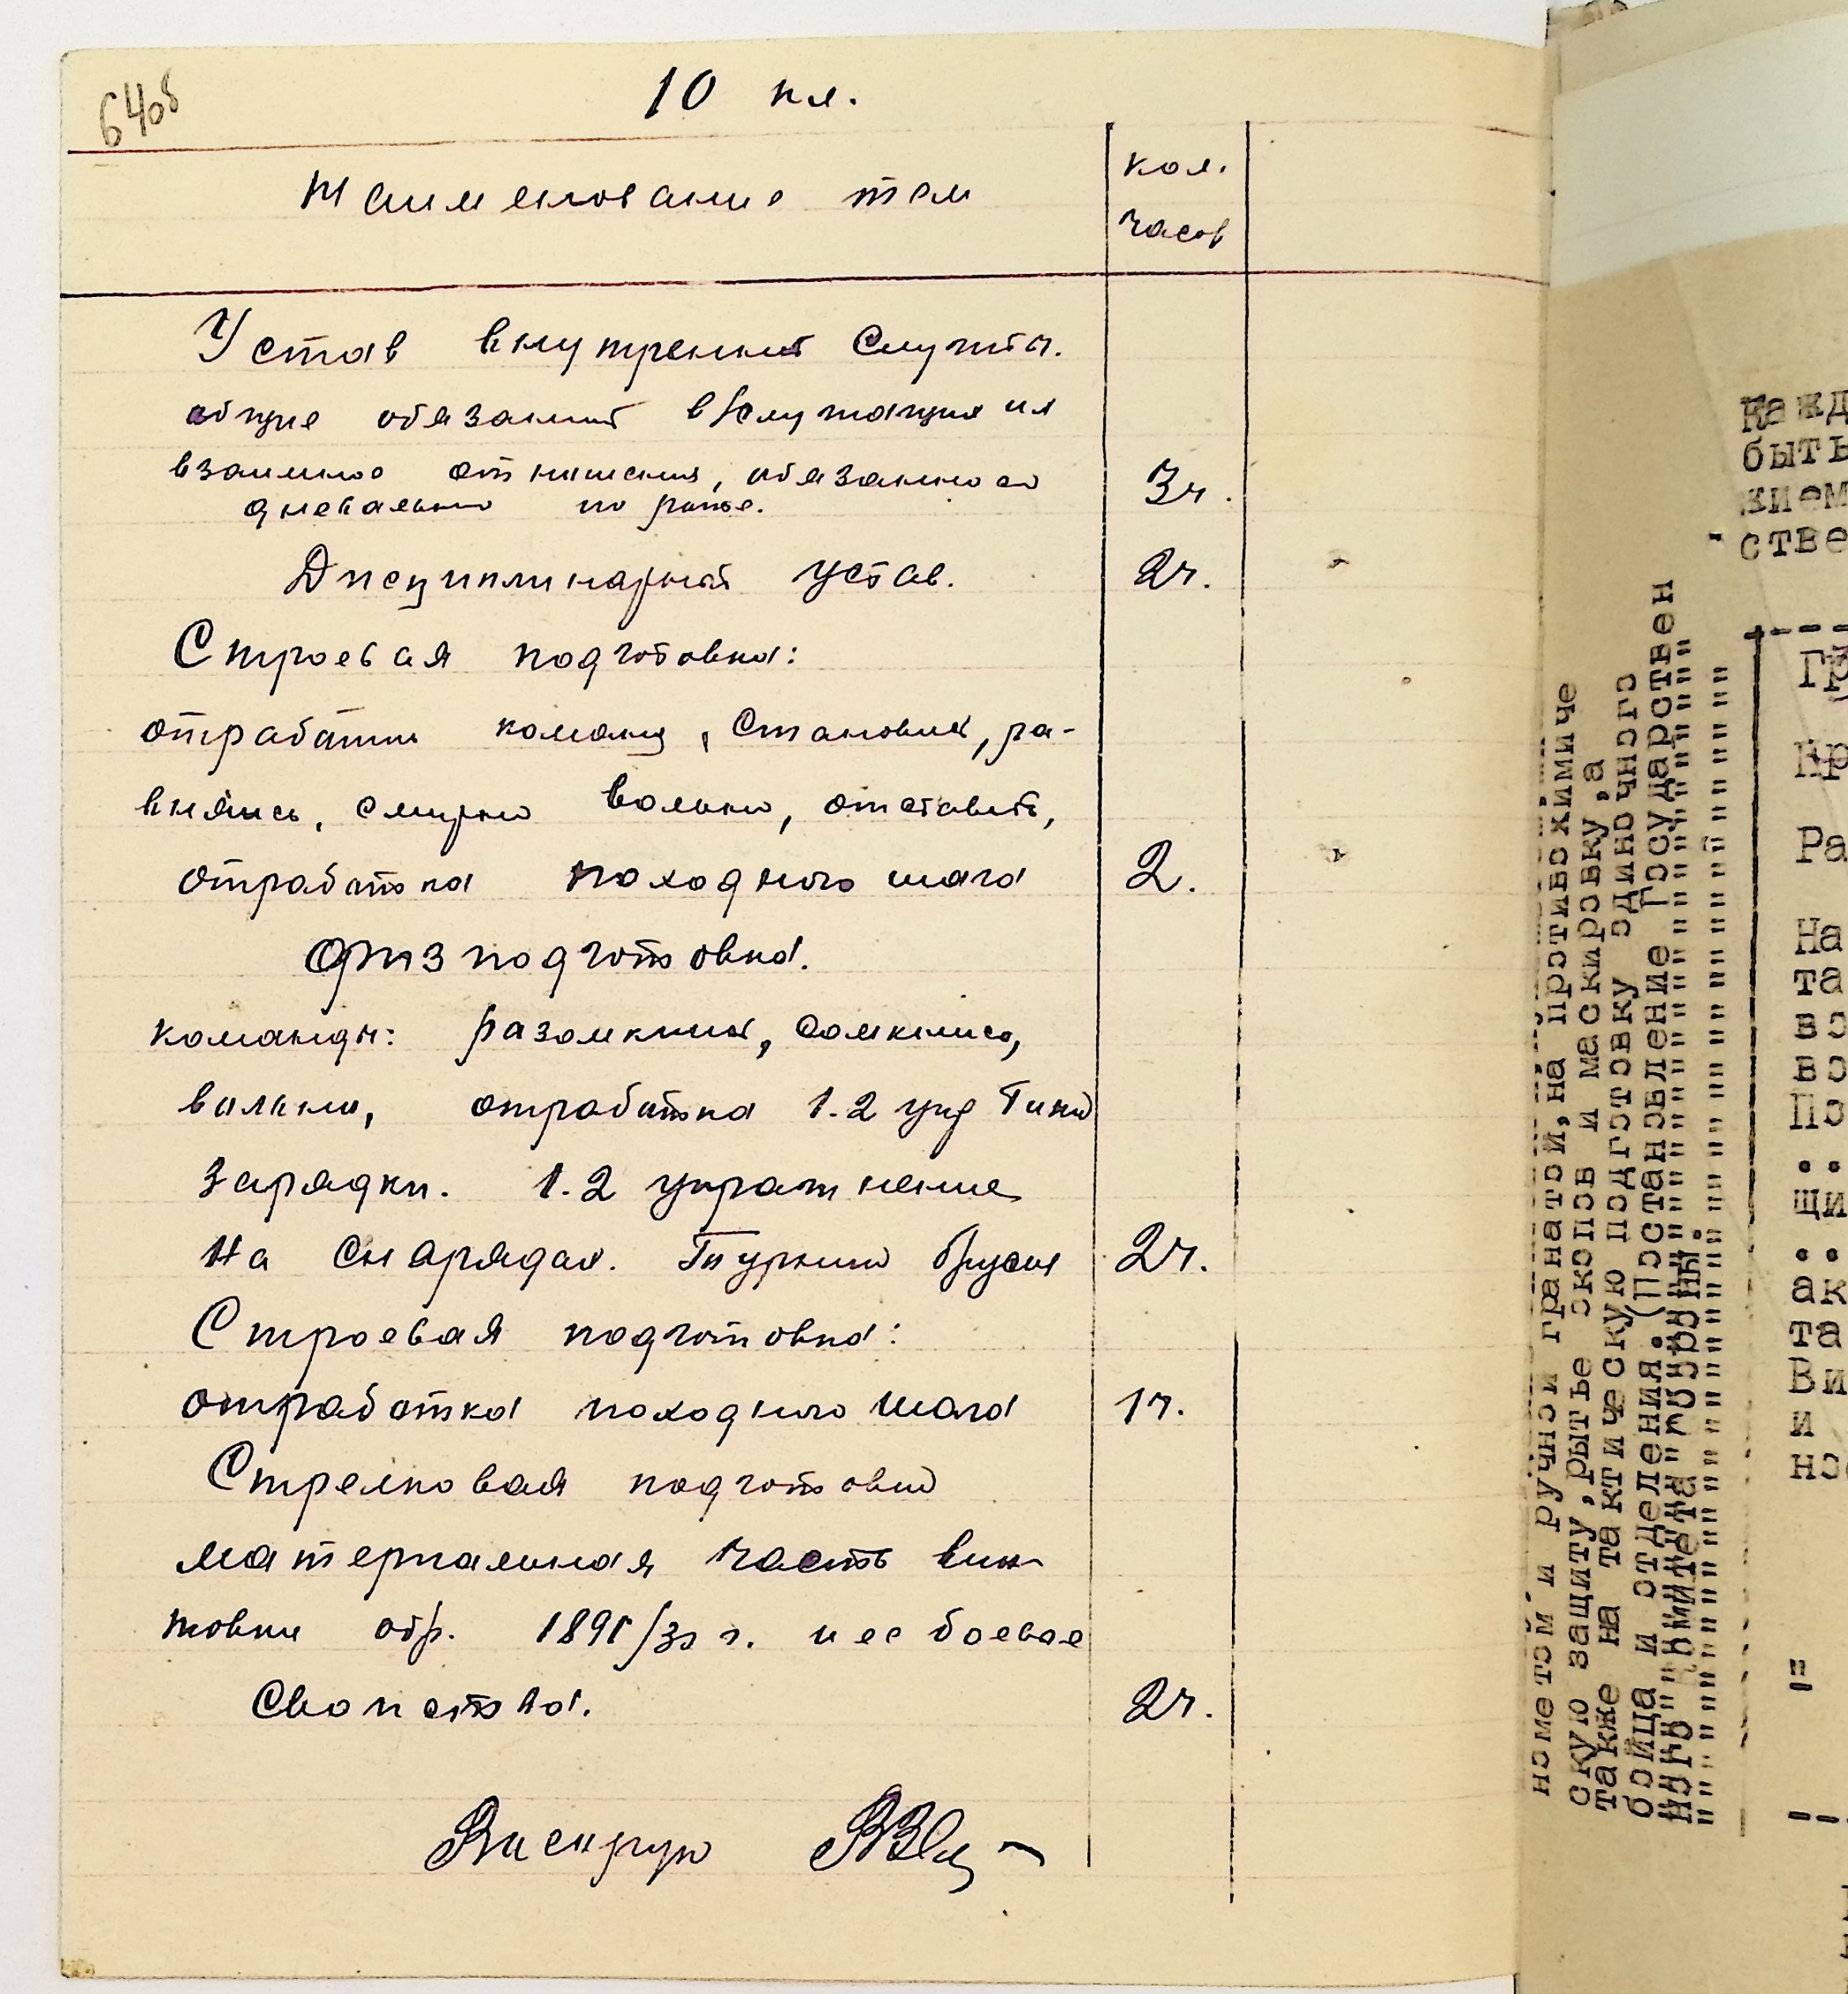 64об
10 кл.
Наименование тем
кол.
часов
Устав внутренней службы.
общие обязанност в/служащих их
взаимное отношения, обязанности
дневального по роте.
3ч.
Дисциплинарный устав.
2ч.
Строевая подготовка:
отработки команд, становись, ра-
вняйсь, смирно вольно, отставить,
отработка походного шага
2.
Физ подготовка.
команды: разомкнись, сомкнись,
вольно, отработка 1.2 упр
зарядки. 1.2 упражнение
на снарядах. Турник брусья
2ч.
Строевая подготовка:
отработка походного шага
1ч.
Стрелковая подготовка
материальная часть вин-
товки обр. 1891/30 г. и ее боевое
свойства.
2ч.
Военрук
нометой и ручной гранатой, на противохимиче
скую защиту, рытье окопов и маскировку, а
также на тактическую подготовку одиночного
бойца и отделения. (Постановление Государствен
ного Комитета Обороны.
Кажд
быть
жием
стве
Гр
Кр
Ра
На
та
во
во
По
..
щи
..
ак
та
Ви
и
но
"